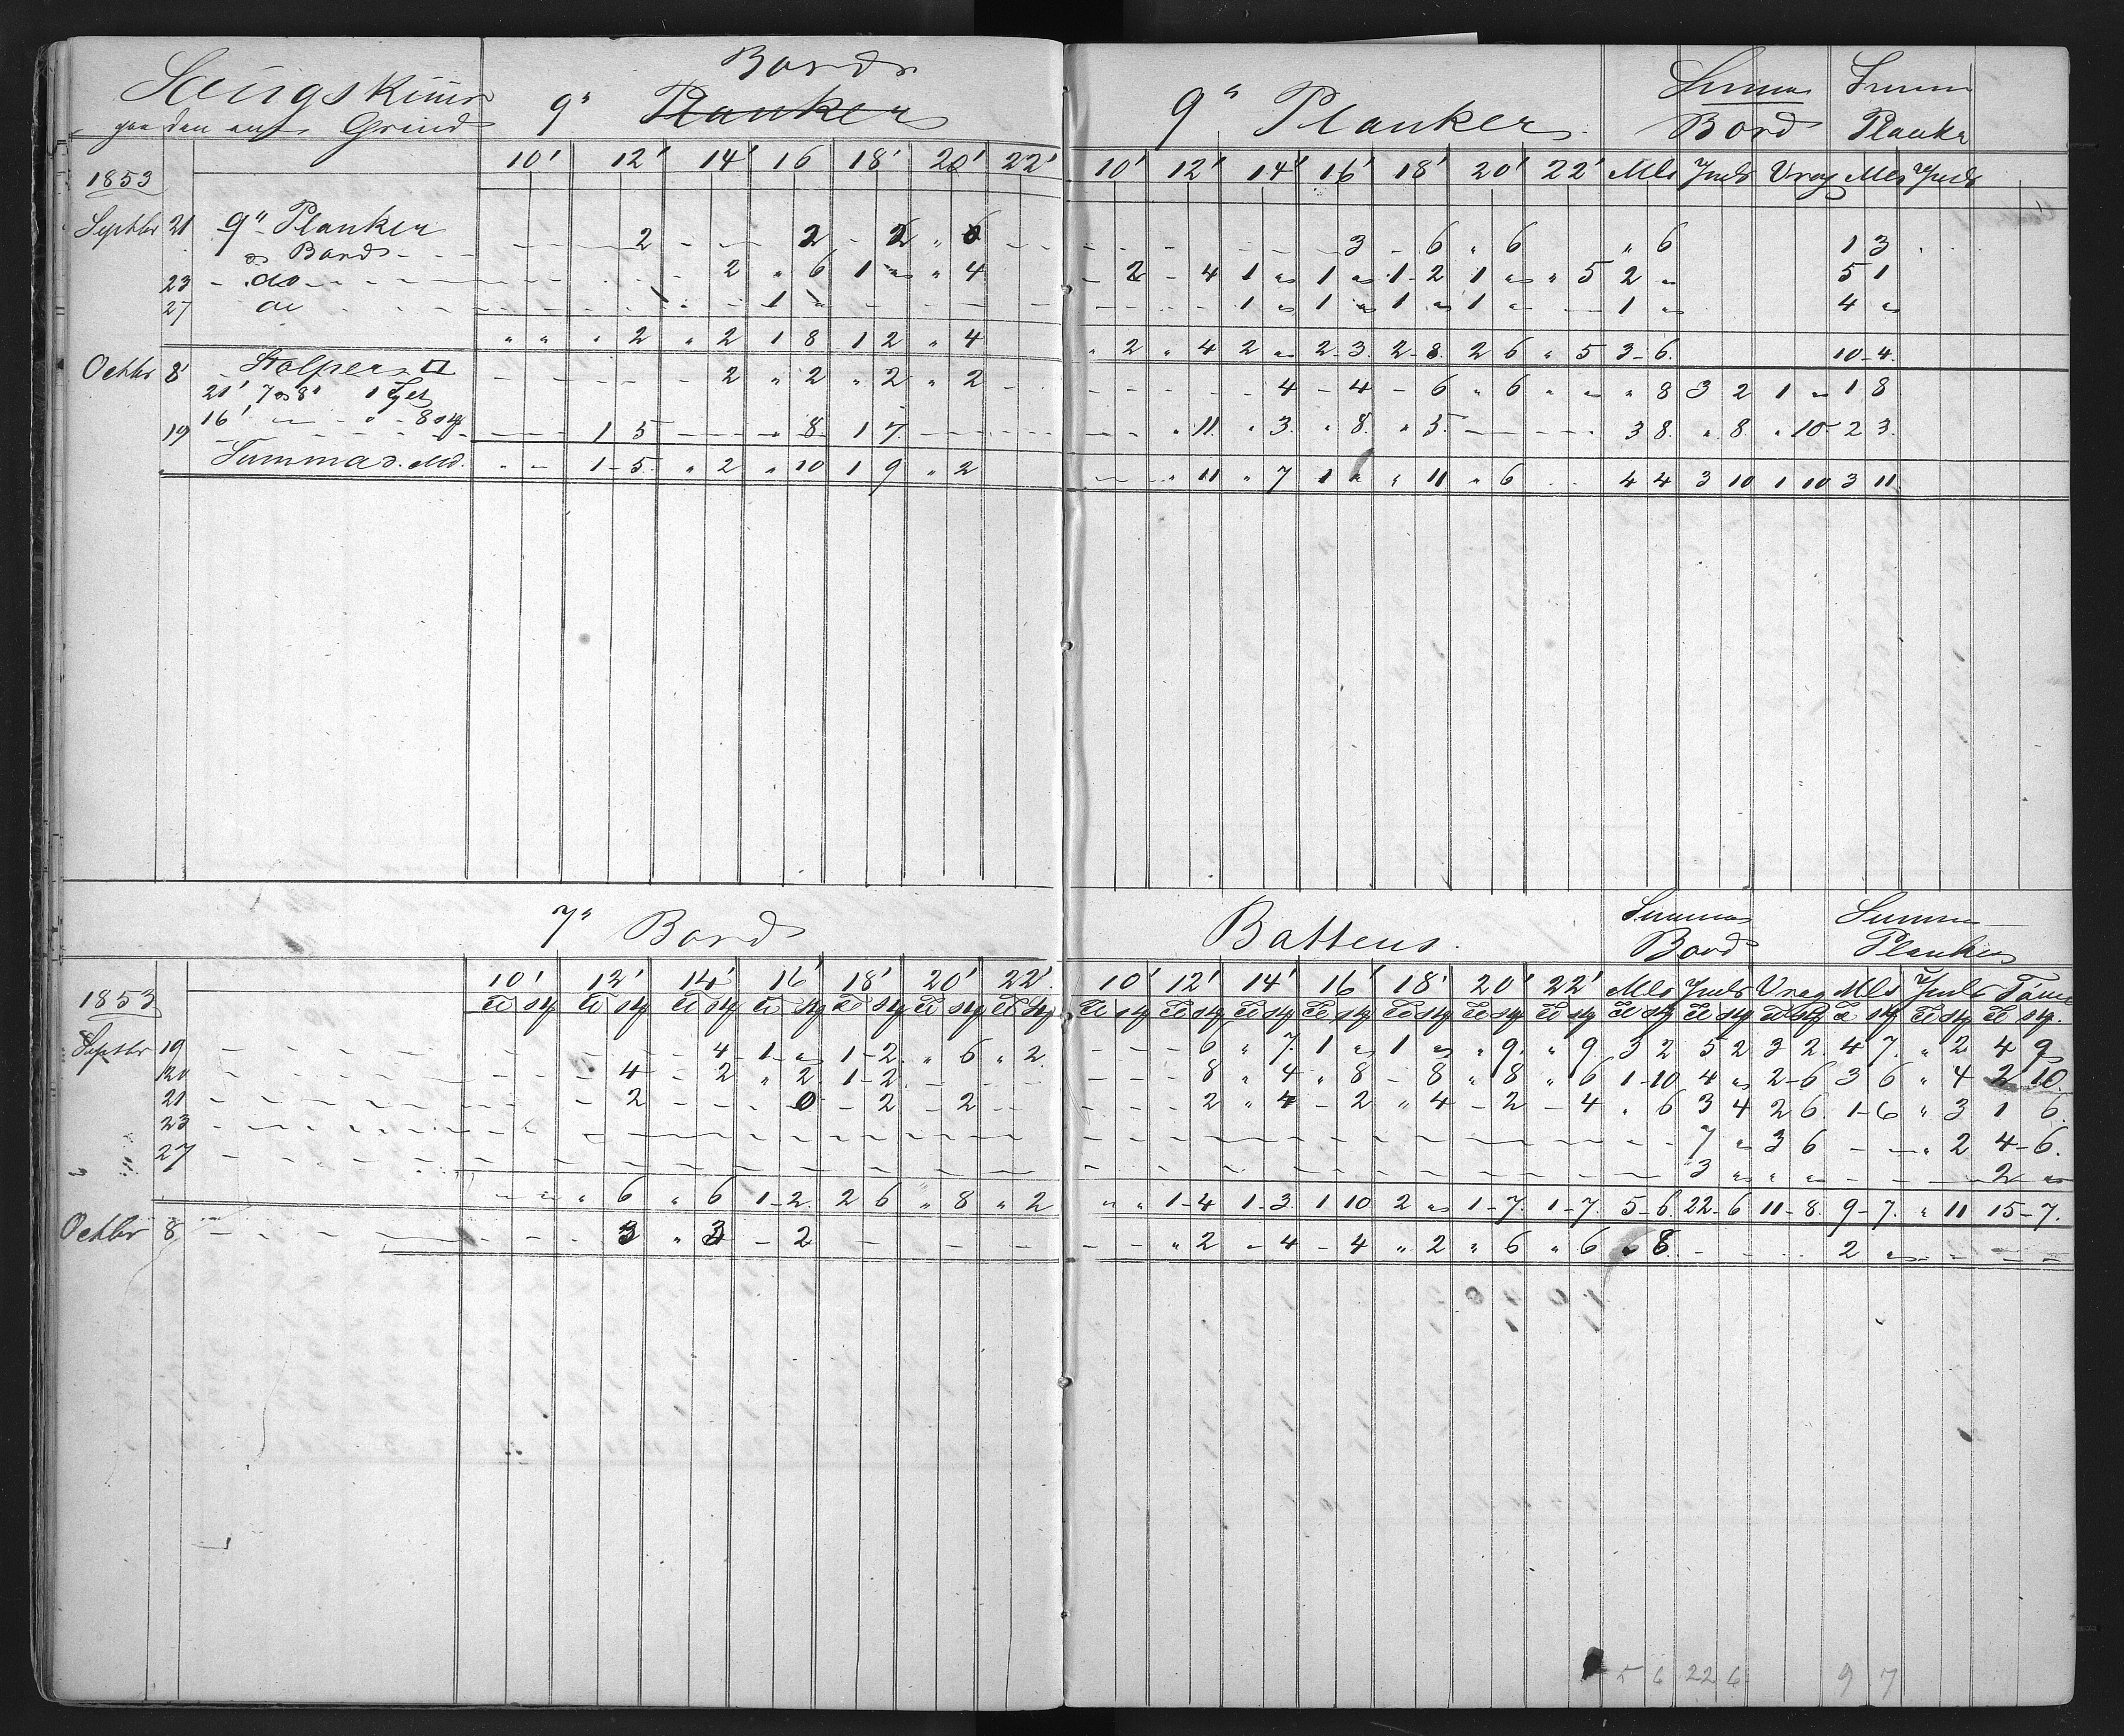 Bord
9" Planker
Grind
10' 12' 14' 16 18' 20' 22'
1853
Septbr 21 9" Planker
Bord - - 2 - - 2 - 2 " 6 - -
23 - do - - 2 " 6 1 " " 4
27 do - - 1 "
" " " 2 " 2 1 8 1 2 " 4
Octbr 8 Stolper - - 2 " 2 " 2 " 2
21' 7 8" 1
16' " 8 stk
19 - - 1 5 - - 8 1 7 - -
Summa - - 1-5 " 2 " 10 1 9 " 2
9" Planker Summa Summa
Bord Planker
10' 12' 14' 16' 18' 20' 22' Mls Juls Vrag Mls Juls
- - - - 3 - 6 " 6 " 6 1 3
- 2 - 4 1 " 1 " 1-2 1 " " 5 2 " 5 1
- - - 1 " 1 " 1 " 1 " - 1 " 4 "
" 2 " 4 2 " 2-3 2-8 2 6 " 5 3-6 10-4
- - - 4 - 4 - 6 " 6 " " " 8 3 2 1 " 1 8
- - " 11 " 3 " 8 " 5 - - - 3 8 " 8 " 10 2 3
- - " 11 " 7 1 " " 11 " 6 - - 4 4 3 10 1 10 3 11
7" Bord
10' 12' 14' 16' 18' 20' 22'
1853
Septbr 19 - - - 4 - 1 " 1-2 " 6 " 2
20 - - - 4 - 2 " 2 1-2 - -
21 - - - 2 - - - 0 - 2 - 2 - -
23 - - -
27 - - -
- " " 6 " 6 1-2 2 6 " 8 " 2
Octbr 8 - - - 3 " 3 - 2 - - -
Battens. Summa Summa
Bord Planker
10' 12' 14' 16' 18' 20' 22' Mls Juls Vrag Mls Juls
- - - 6 " 7 1 " 1 " " 9 " 9 3 2 5 2 3 2 4 7 " 2 4 9
- - - 8 " 4 " 8 - 8 " 8 " 6 1-10 4 " 2-6 3 6 " 4 2 10
- - - 2 " 4 - 2 " 4 - 2 - 4 " 6 3 4 2 6 1-6 " 3 1 6
- - - 7 " 3 6 - - " 2 4-6
- - - 3 " " " - - - 2 "
" " 1-4 1-3 1 10 2 " 1-7 1-7 5-6 22-6 11-8 9-7 " 11 15-7
- - " 2 - 4 - 4 " 2 " 6 " 6 " 8 - - - 2 " - -
5 6 22 6 9 7